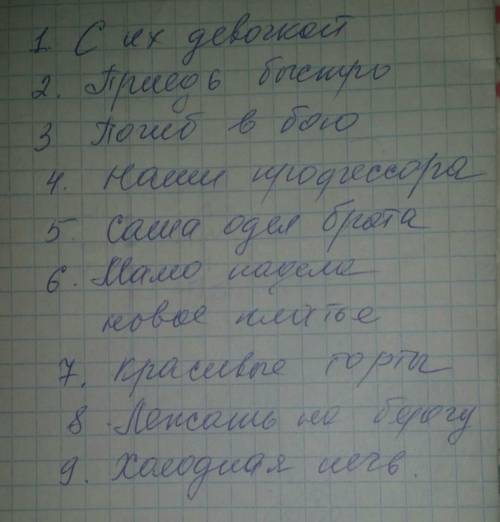 1. С их девочкой
2. Приедь быстро
3 Погиб в бою
4. Наши профессора
5. Саша одел брата
6. Мама надела
новое платье
7. Красивые торты
8. Лежать на берегу
9. Холодная печь.